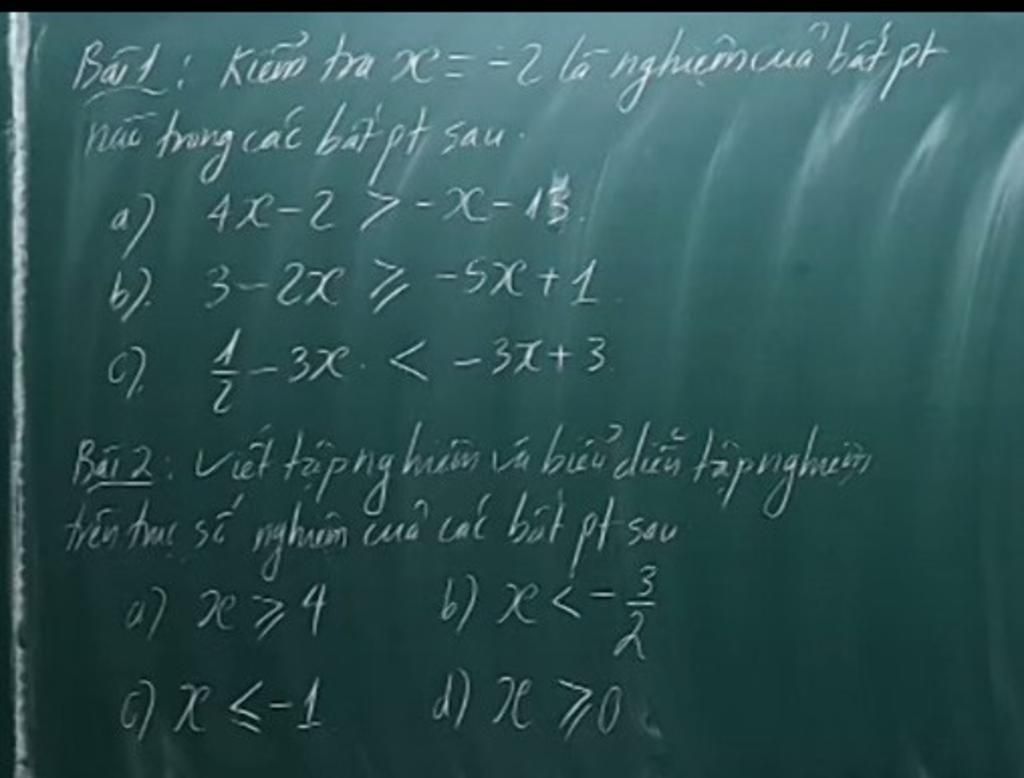 Bài 1: Kiểm tra x = -2 là nghiệm của bất pt
nào trong các bất pt sau.
a) 4x - 2 > -x - 15.
b). 3 - 2x ≥ -5x + 1.
c). 1/2 - 3x < -3x + 3
Bài 2: Viết tập nghiệm và biểu diễn tập nghiệm
trên trục số nghiệm của các bất pt sau
a) x ≥ 4 b) x < -3/2
c) x ≤ -1 d) x ≥ 0